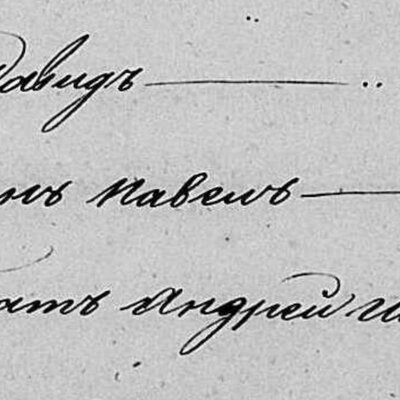 Давидъ
нъ Павелъ
атъ Андрей